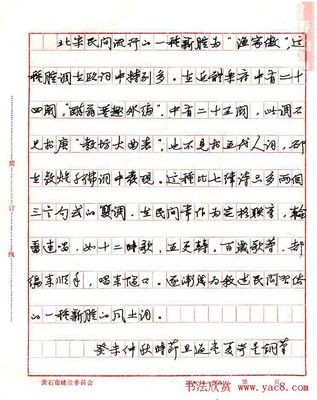 北宋民间流行的一种新腔为“渔家傲”这
种腔调在政词中特别多。在近词集字中有二十
四阕，“醉翁琴趣外编”，中有二十五阕，此调不
见书唐“教坊大曲表”，也不见书五代人词，
在敦煌子佛词中发现。这种比七律诗只多两个
三字句式的双调，在民间常作为定格联章，轮
番连唱，如十二时歌，五更转，百岁歌等，都
编来顺手，唱来随口。逐渐成为叙述民间习俗
的一种新腔的风土词。
癸未仲秋时节
装
订
线
黄石市建设委员会
第 页
书法欣赏
www.yac8.com